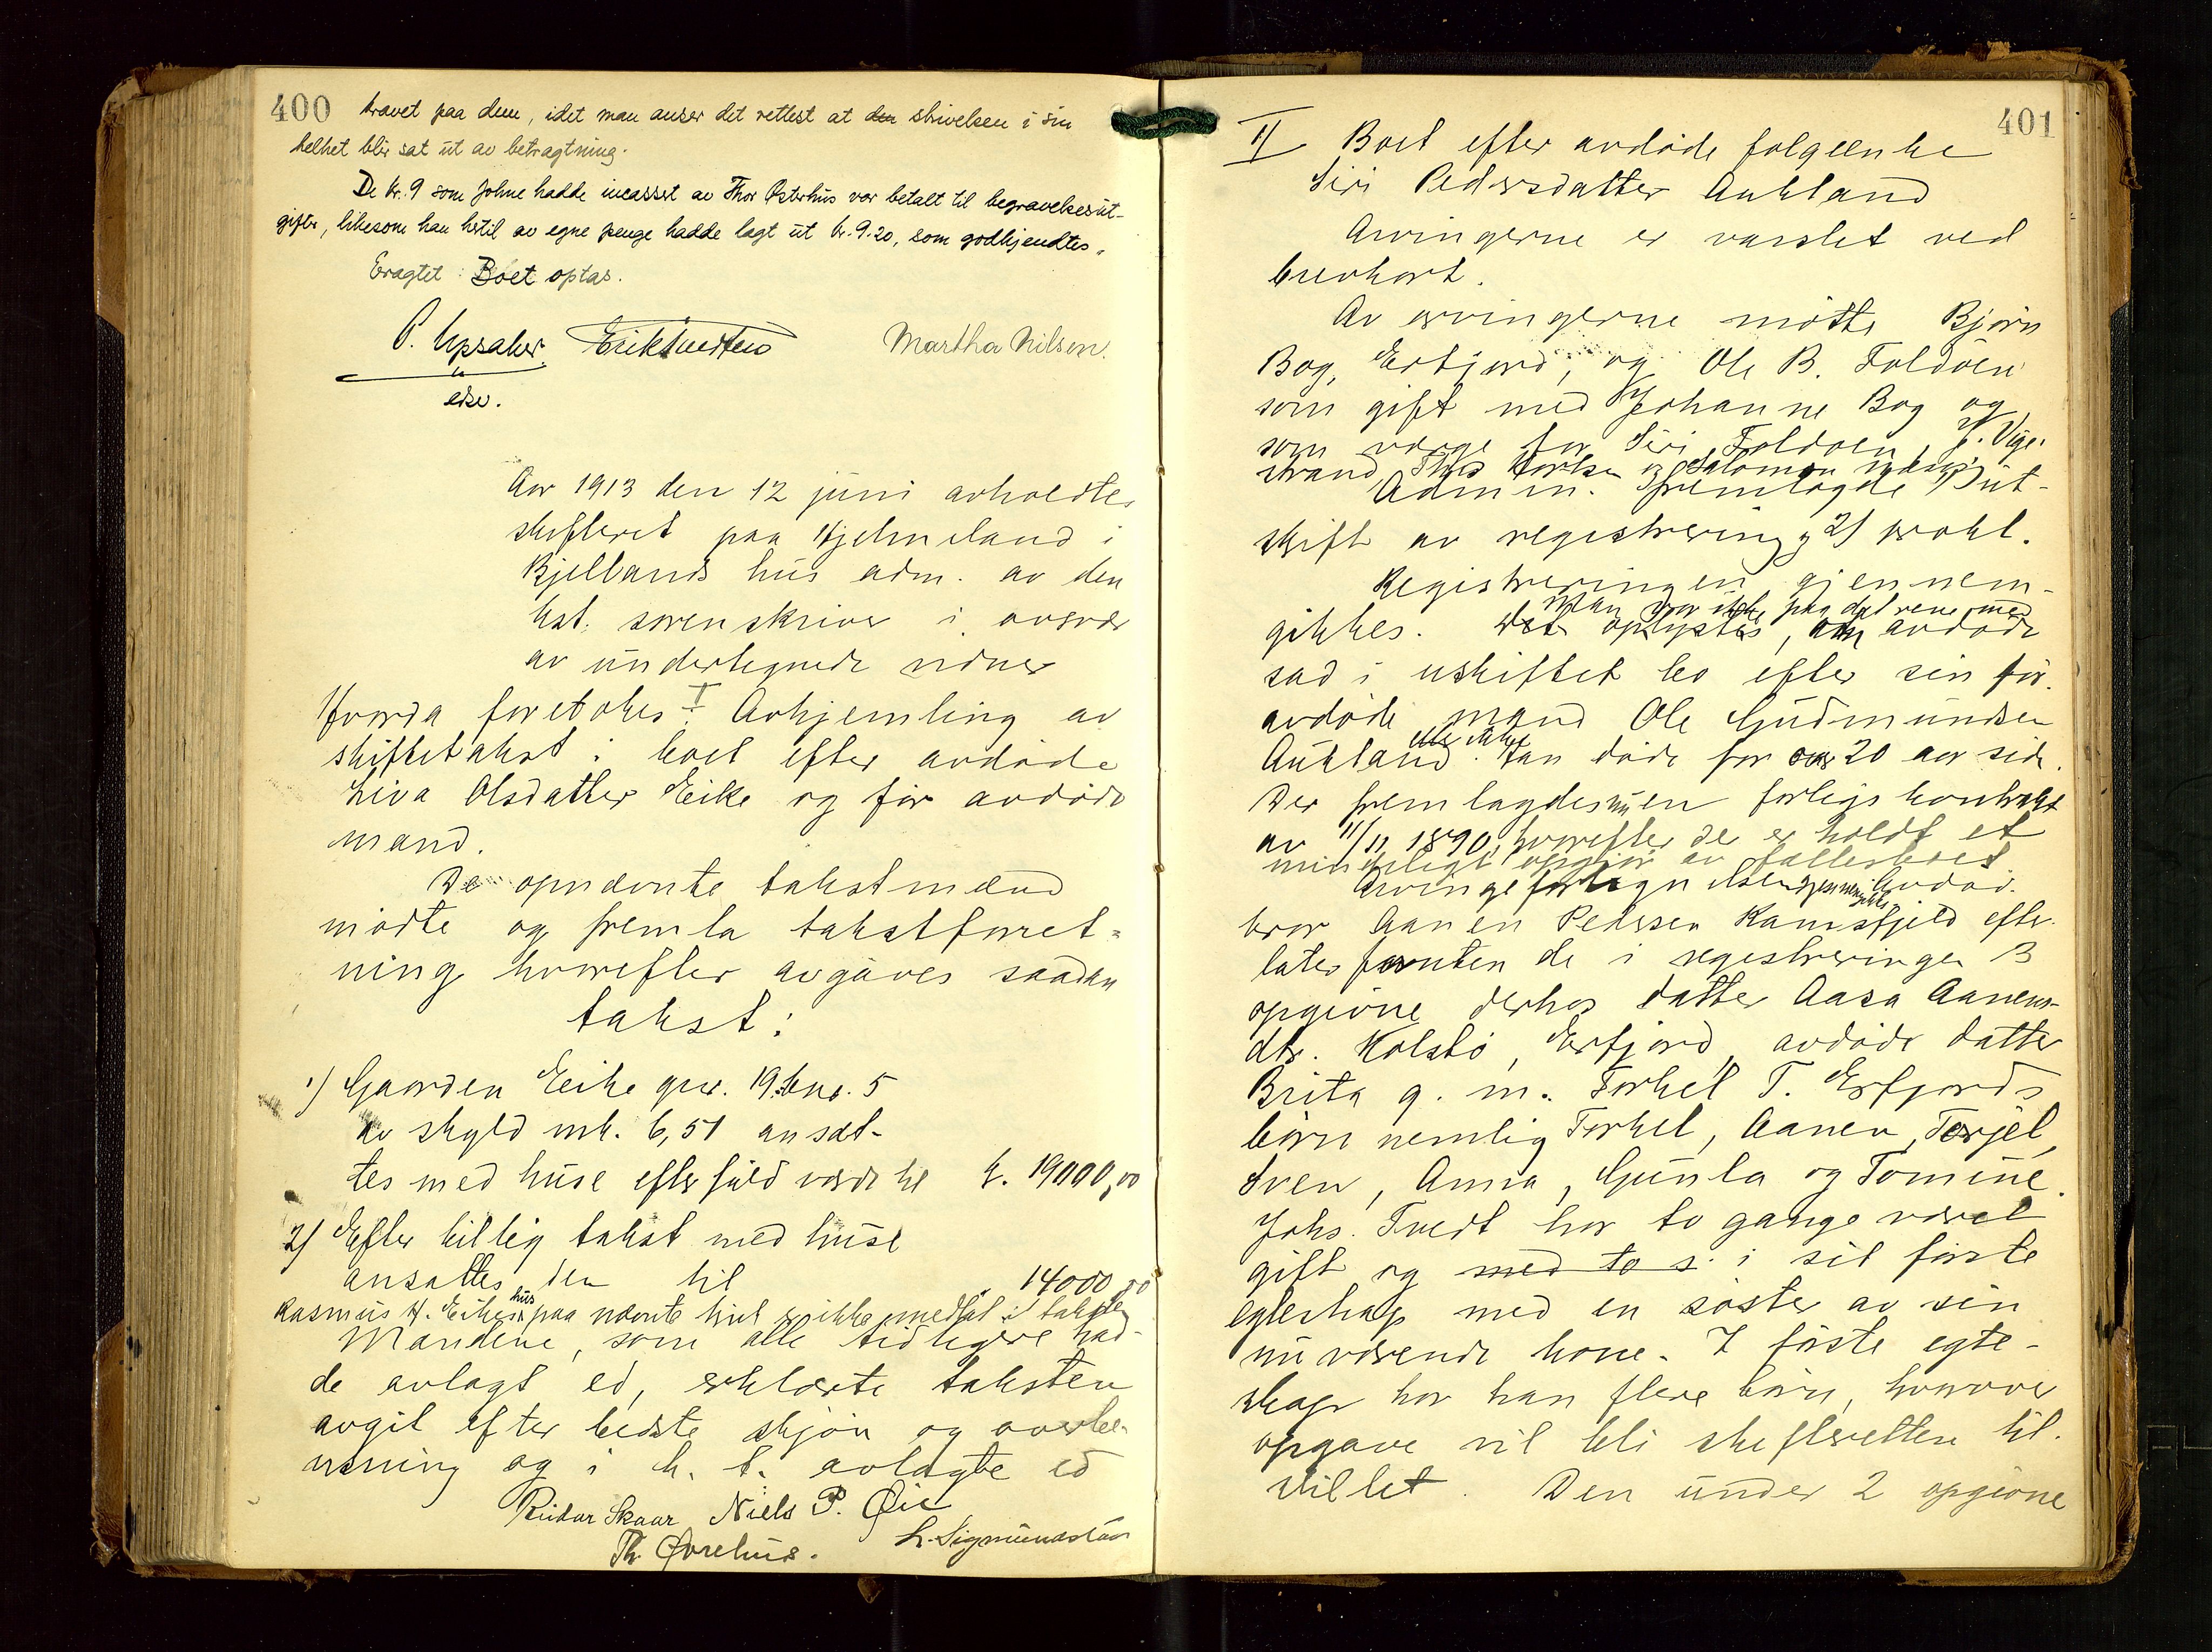 400 kravet paa dem, idet man anser det rettest at den skrivelsen i sin
helhet blir sat ut av betragtning.
De kr. 9 som Johne hadde incassert av Thor Østerhus var betalt til begravelsesut-
gifter, likesom han hertil av egne penge hadde lagt ut kr. 9.20, som godkjendtes.
Eragtet: Boet optas.
P. Upsaker Erik Martha Nilsen.
eksr.
Aar 1913 den 12 juni avholdtes
skifteret paa Hjelmeland i
Kjellands hus adm. av den
kst. sorenskriver i overvær
av undertegnede vidner
Hvorda foretokes I Avhjemling av
skiftetakst i boet efter avdøde
Liva Olsdatter Eike og før avdøde
mand.
De opnævnte takstmænd
mødte og fremla takstforret-
ning hvorefter avgaves saadan
takst:
1) Gaarden Eike gnr. 19 bno. 5
av skyld mk. 6,51 ansat-
tes med huse efter fuld værdi til k. 19000,00
2) Efter billig takst med huse
ansattes den til " 14000,00
Rasmus H. Eikes hus paa nævnte bruk er ikke medtat i taksten
Mændene, som alle tidligere had-
de avlagt ed, erklærte taksten
avgit efter bedste skjøn og overbe-
visning og i h. t. avlagte ed
Reidar Skaar Niels P. Øie
Th. Øvrehus. L. Sigmundstad
401
II Boet efter avdøde folgeenke
Siri Pedersdatter Aukland
Arvingerne er varslet ved
brevkort.
Av arvingerne møtte Bjørn
Bog, Erfjord, og Ole B. Foldøen
som gift med Johanne Bog og
som værge for Siri Foldøen, J. Vige-
strand, Ths og Salomon
Admin. fremlagde 1) ut-
skift av registrering og 2) prokl.
Registreringen gjennem-
man var ikke paa det rene med
gikkes. Det oplystes, om avdøde
sad i uskiftet bo efter sin før
avdøde mand Ole Gudmundsen
eller ikke
Aukland. Han døde for ca 20 aar side.
Der fremlagdes nu en forligskontrakt
av 11/11 1890, hvorefter der er holdt et
mindeligt opgjør av fællesboet
Arvingefortegnelsen gjennemgikkes. Avdød.
bror Aanen Pedersen Ramsfjeld efter-
later foruten de i registreringen 3
opgivne derhos datter Aasa Aanens-
dtr. Kolstø, Erfjord, avdøde datter
Brita g. m. Torkel T. Erfjords
børn nemlig Torkel, Aanen, Torjel,
Sven, Anna, Gunla og Tomine.
Johs. Tvedt har to gange været
gift og med to s. i sit første
egteskap med en søster av sin
nuværende kone. I første egte-
skap har han flere børn, hvorover
opgave vil bli skifteretten til-
stillet. Den under 2 opgivne